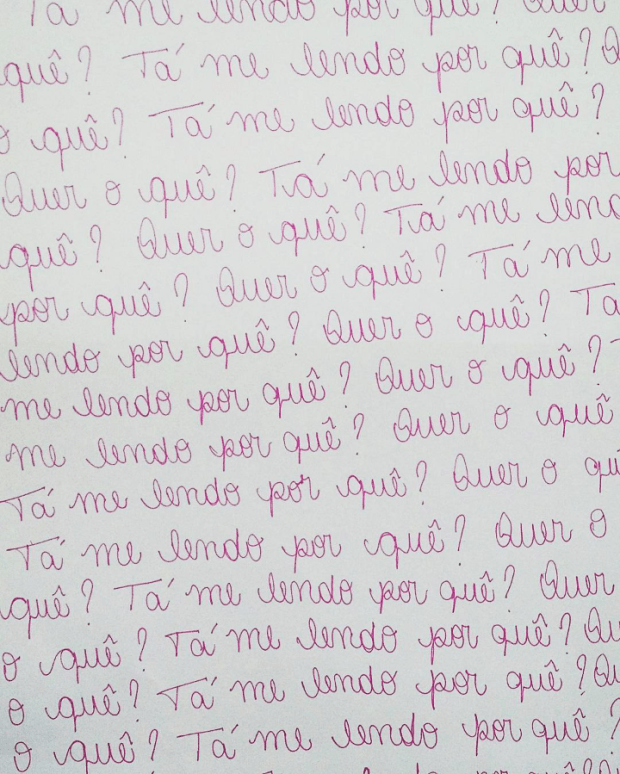 Tá me lendo por quê? Quer
quê? Tá me lendo por quê? Q
o quê? Tá me lendo por quê?
Quer o quê? Tá me lendo por
quê? Quer o quê? Tá me lend
por quê? Quer o quê? Tá me
lendo por quê? Quer o quê? Ta
me lendo por quê? Quer o quê?
me lendo por quê? Quer o quê
Tá me lendo por quê? Quer o qu
Tá me lendo por quê? Quer o
quê? Tá me lendo por quê? Quer
o quê? Tá me lendo por quê? Qu
o quê? Tá me lendo por quê? Qu
o quê? Tá me lendo por quê?